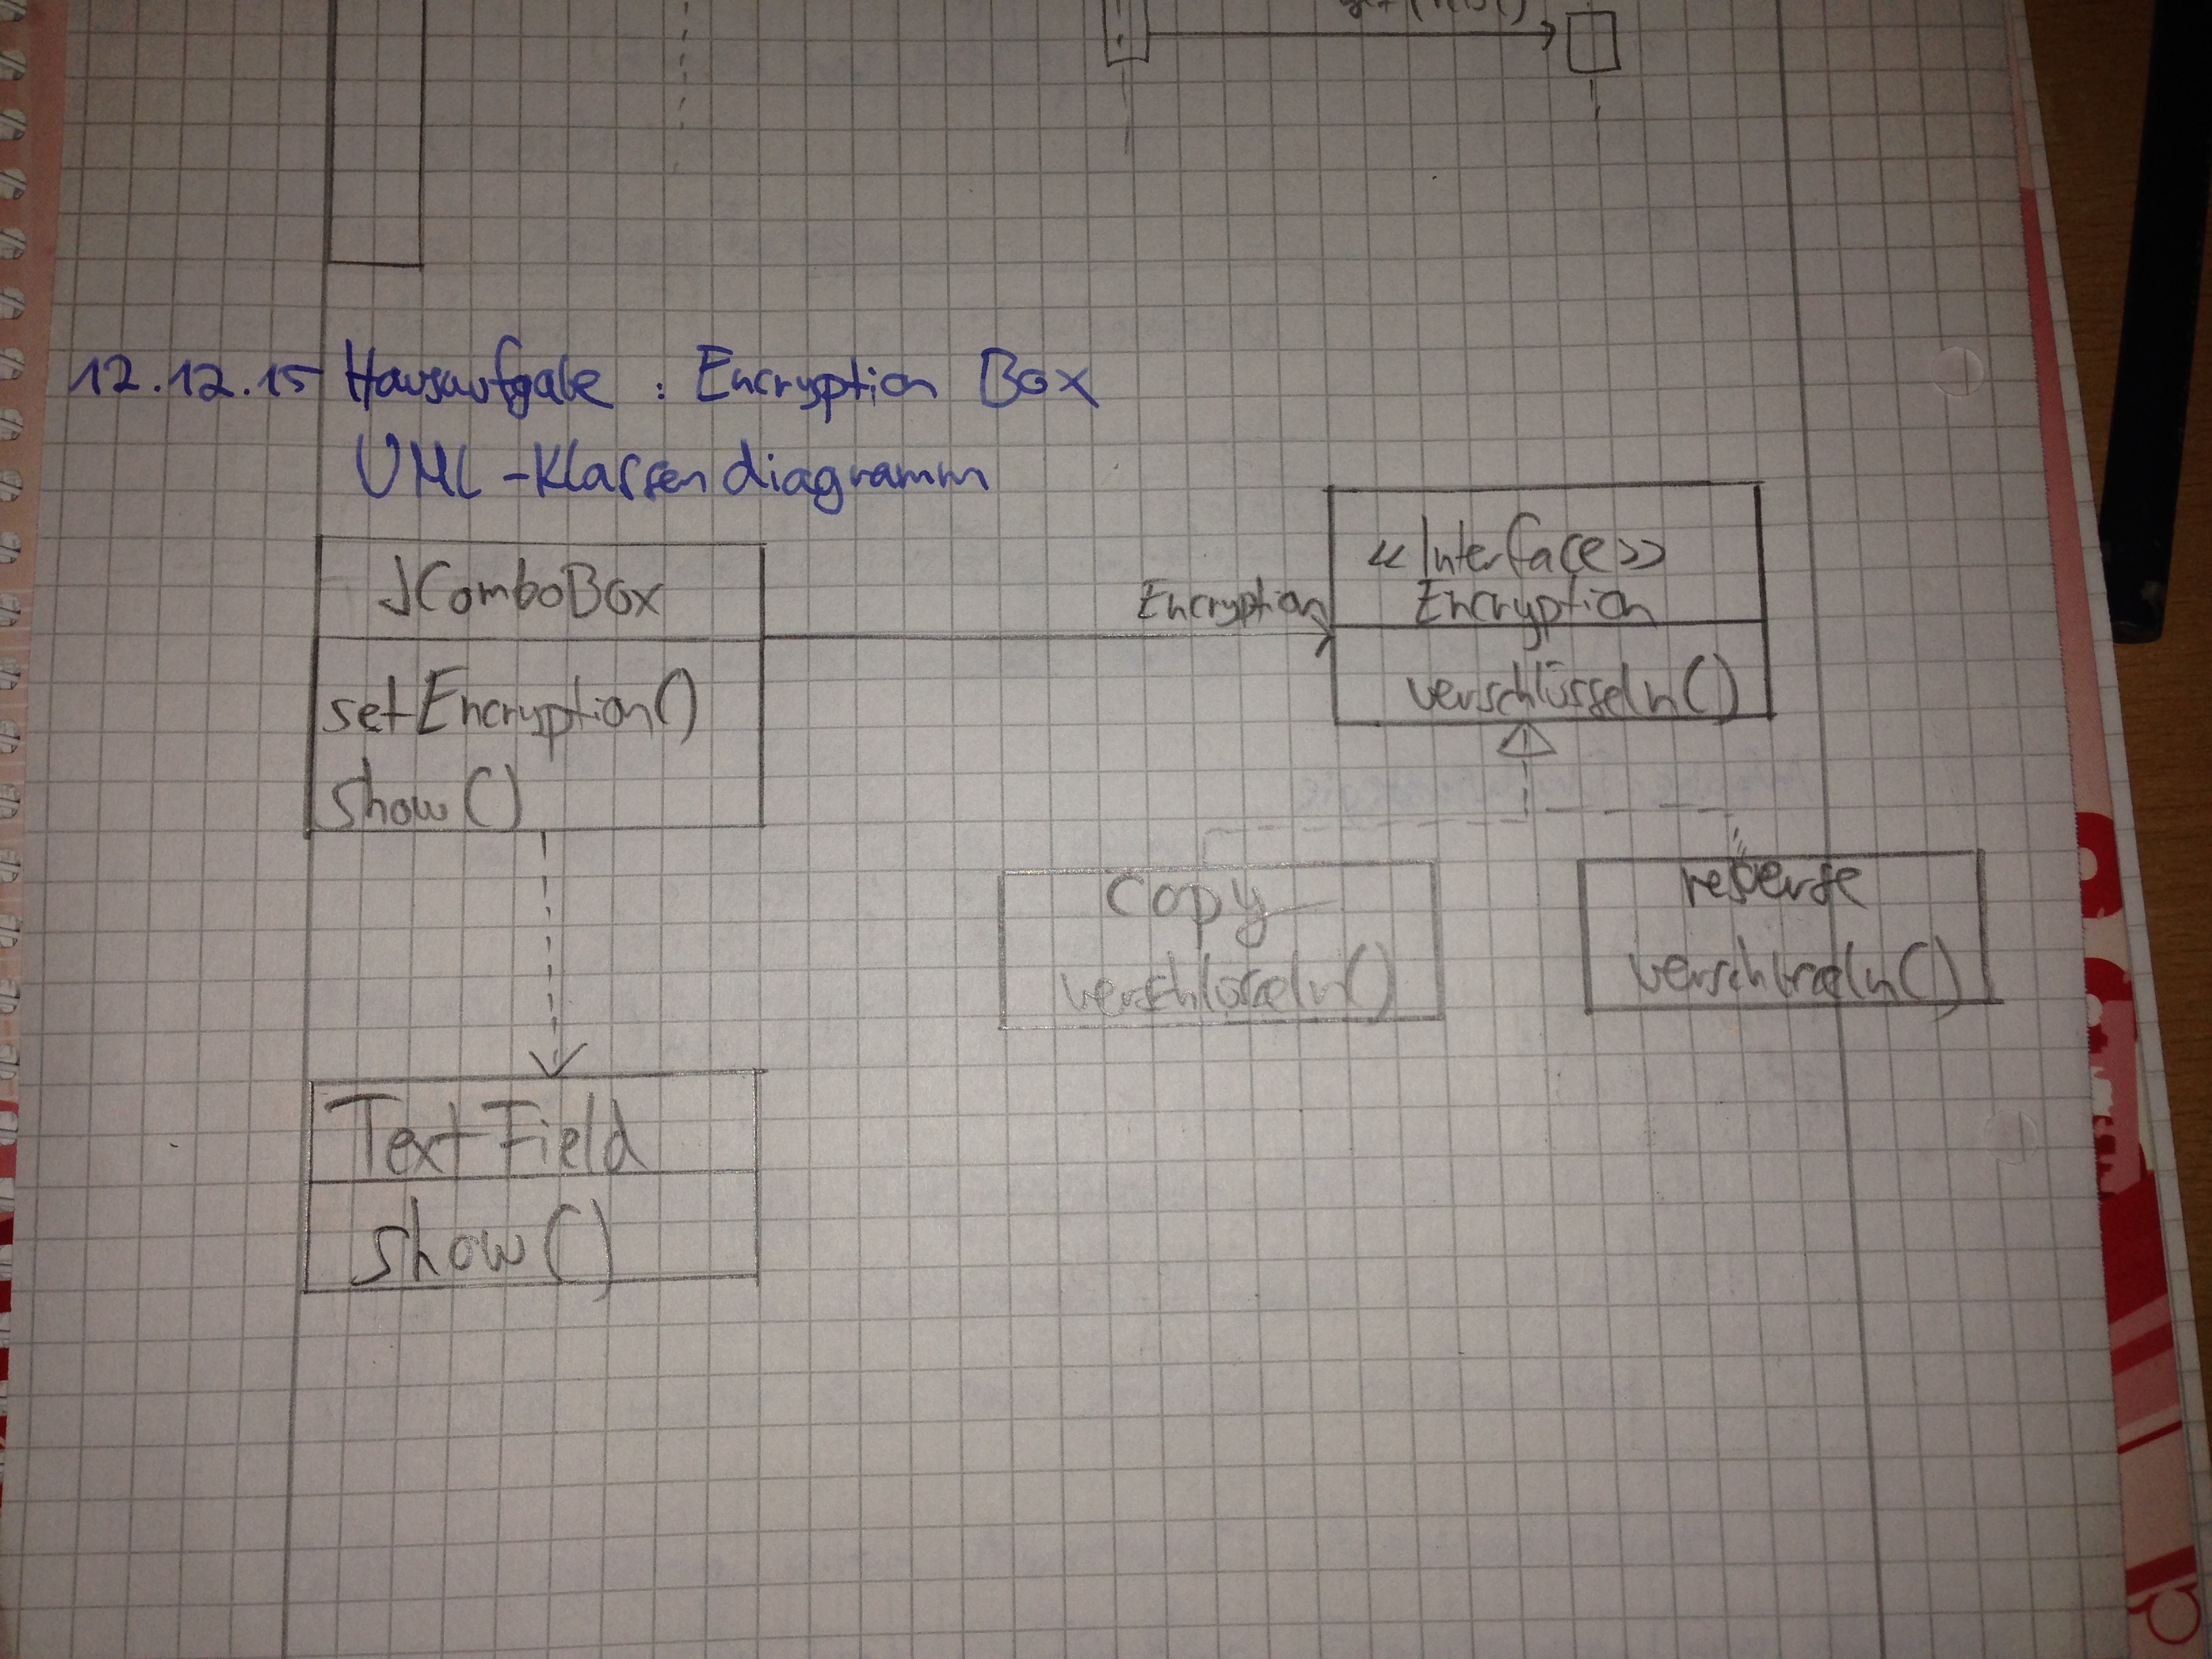 12.12.15 Hausaufgabe : Encryption Box
UML-Klassendiagramm
JComboBox
setEncryption()
Show()
Encryption
<<Interface>>
Encryption
verschlüsseln()
Copy
verschlüsseln()
reverse
verschlüsseln()
TextField
Show()